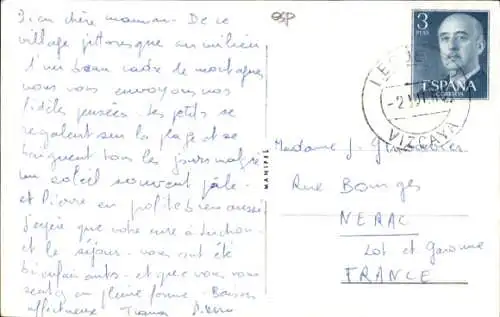 esp
Bien chère maman - De ce
village pittoresque au milieu
d'un beau cadre de montagnes
nous vous envoyons nos
fidèles pensées. Les petits se
régalent sur la plage et se
baignent tous les jours malgré
un soleil souvent pâle.
et Pierre en profite bien aussi
j'espère que votre cure à Luchon
et le séjour vous ont été
bienfaisants et que vous vous
sentez en pleine forme - Baisers
affectueux
MANIPEL
3
PTAS
ESPAÑA
CORREOS
VIZCAYA
Madame J.
Rue Bourges
NERAC
Lot et Garonne
FRANCE